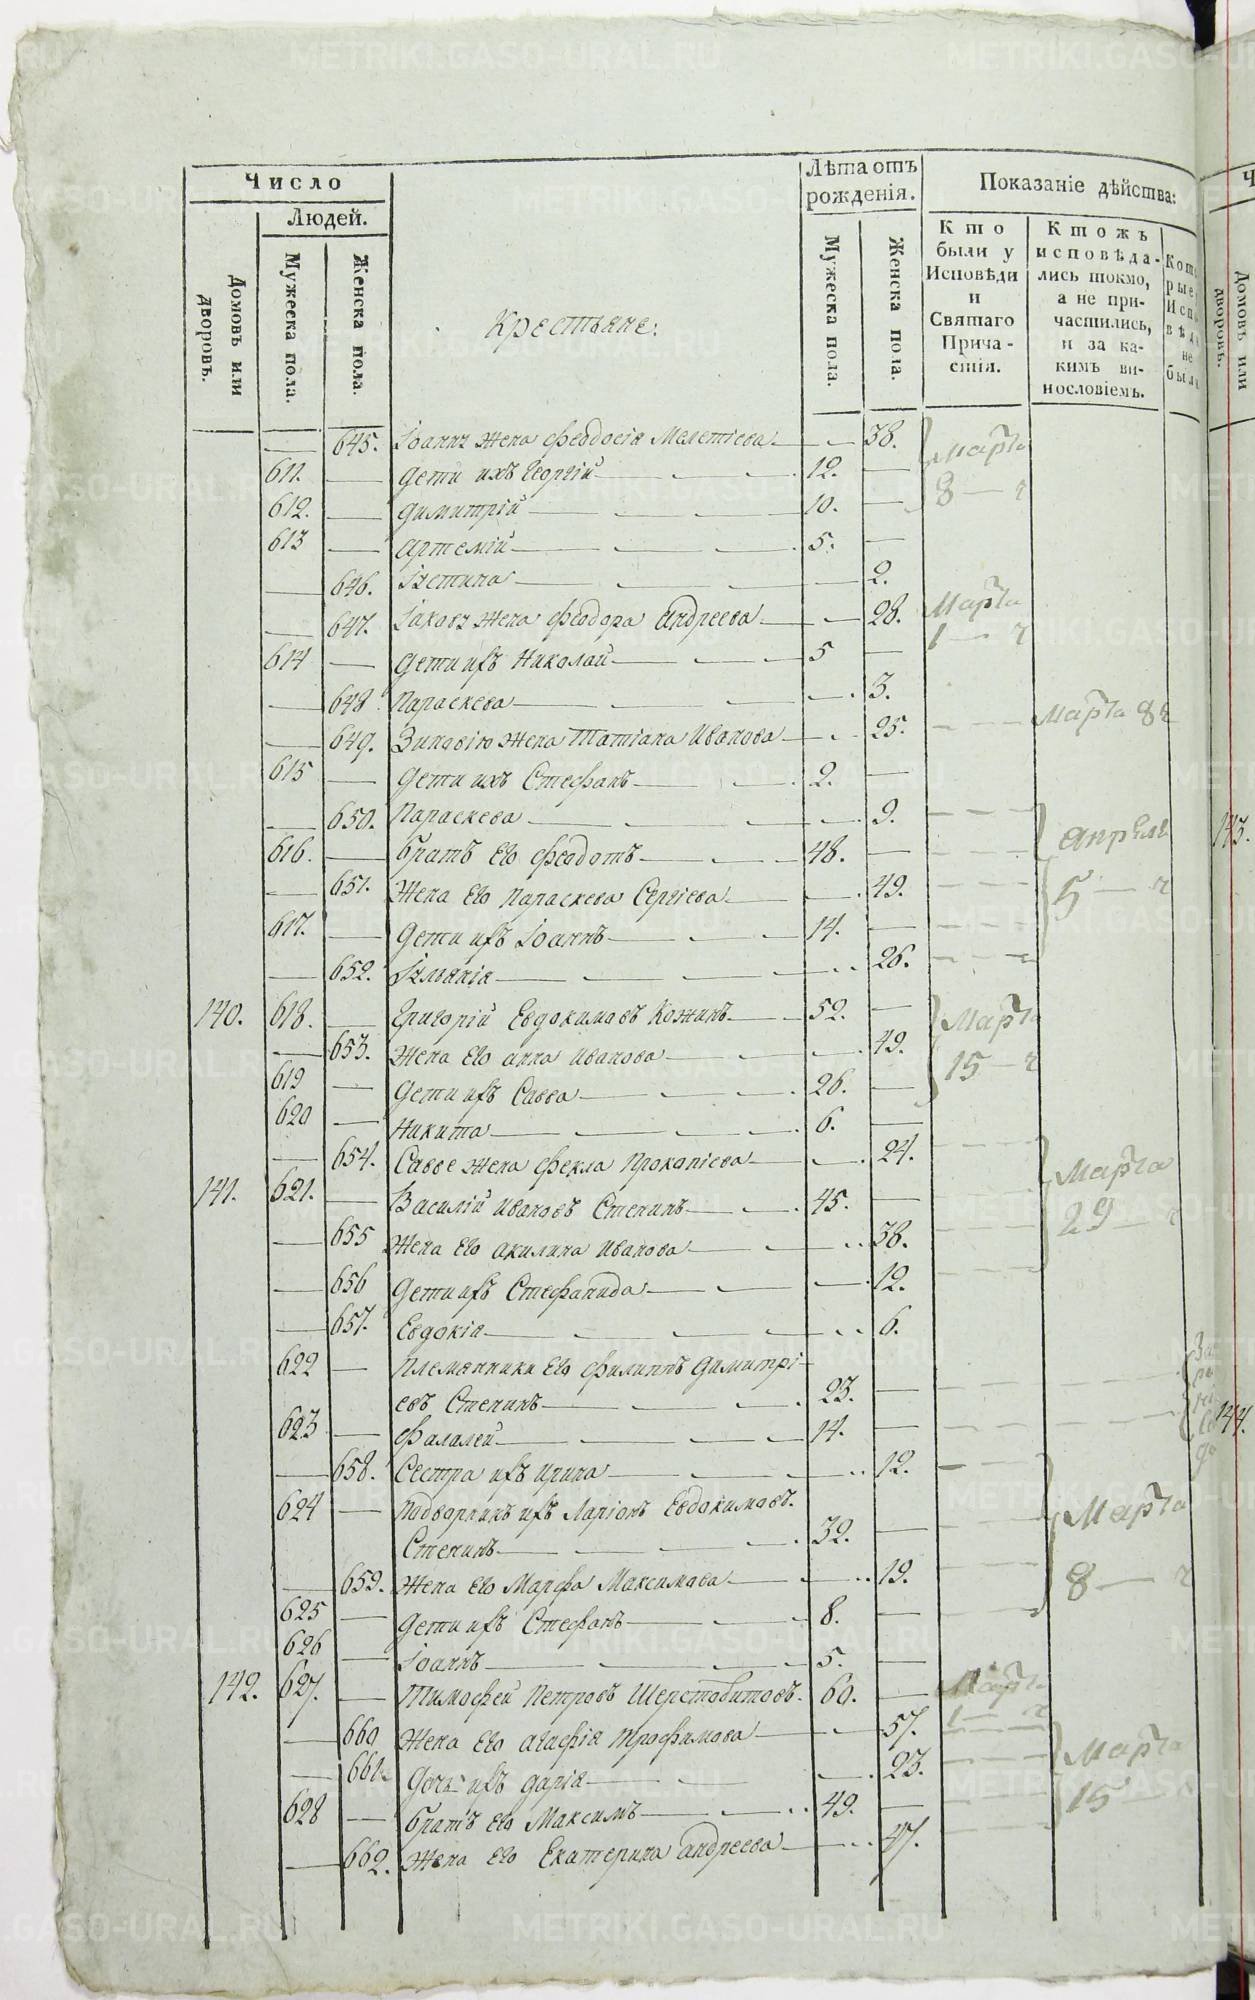 Число
Людей.
Домовъ или дворовъ.
Мужеска пола.
Женска пола.
Крестьяне.
Лѣта отъ рожденія.
Мужеска пола.
Женска пола.
Показаніе дѣйства:
Кто были у Исповѣди и Святаго Прича-стія.
Ктожъ исповѣда-лись токмо, а не при-частились, и за ка-кимъ ви-нословіемъ.
645. Іоаннъ жена Феодосія Мелетіева 38. Марта
611. Дети ихъ Георгій 12.
612. Димитрій 10. 8
613 Артемій 5.
646. 2.
647. Іаковъ жена Феодора Андреева 28. Марта
614 Дети ихъ Николай 5 1
648 Параскева 3.
649. Зиновію жена Татіана Иванова 25. Марта 8
615 Дети ихъ Стефанъ 2.
650. Параскева 9.
616. братъ Его Феодотъ 48. Апреля
651. Жена Его Параскева Сергіева 49. 5
617. Дети ихъ Іоаннъ 14.
652. 26.
140. 618. Григорій Евдокимовъ Кожинъ 52. Марта
653. Жена Его Анна Иванова 49. 15
619 Дети ихъ Савва 26.
620 Никита 6.
654. Савве жена Фекла Прокопіева 24. Марта
141. 621. Василій Ивановъ Стенинъ 45. 29
655 Жена Его Акилина Иванова 38.
656 Дети ихъ Стефанида 12.
657. Евдокія 6.
622 Племянники Его Филиппъ Димитрі-
евъ Стенинъ 23.
623 Фалалей 14.
658. Сестра ихъ Ирина 12.
624 Подворникъ ихъ Ларіонъ Евдокимовъ Марта
Стенинъ 32.
659. Жена Его Марфа Максимова 19. 8
625 Дети ихъ Стефанъ 8.
626 Іоаннъ 5.
142. 627. Тимофей Петровъ Шерстобитовъ 60. Марта
660 Жена Его Агафія Трофимова 57. 1
661. Дочь ихъ Дарія 23. Марта
628 братъ Его Максимъ 49. 15
662. Жена Его Екатерина Андреева 47.
143.
144.
METRIKI.GASO-URAL.RU